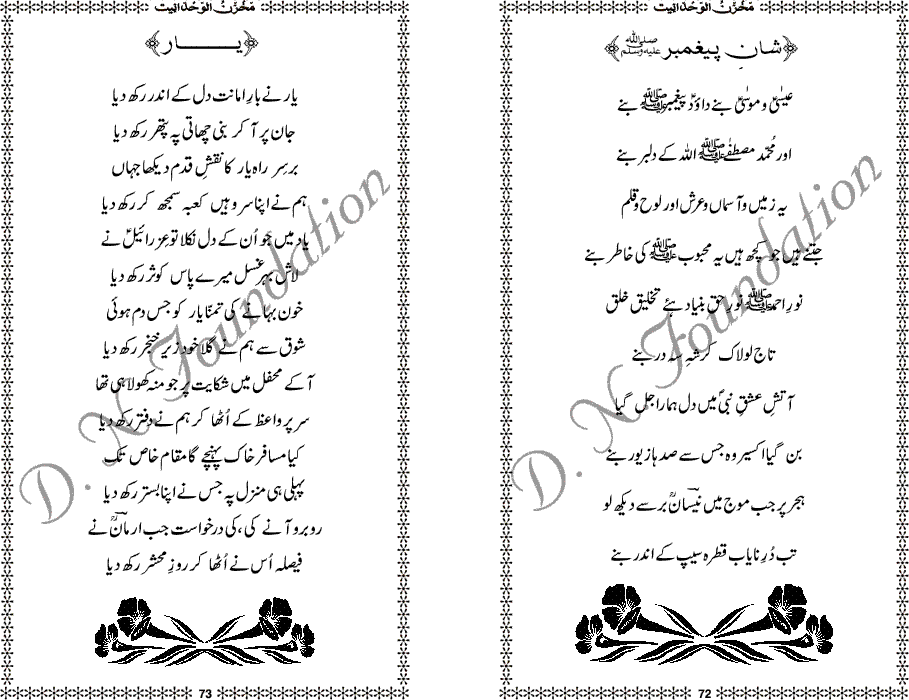 مخزن الوحدانیت
شانِ پیغمبر ﷺ
عیسیٰؑ و موسیٰؑ بنے داؤدؑ پیغمبر ﷺ بنے
اور مُحمّد مصطفےٰ ﷺ اللہ کے دلبر بنے
یہ زمیں و آسماں و عرش اور لوح و قلم
جتنے ہیں جو کچھ ہیں یہ محبوب ﷺ کی خاطر بنے
نورِ احمد ﷺ نورِ حق بنیاد ہئے تخلیق خلق
تاجِ لولاک کرشہِ سہ در بنے
آتشِ عشقِ نبیؐ میں دل ہمارا جل گیا
بن گیا اکسیر وہ جس سے صدہا زیور بنے
ہجر پر جب موج میں نیسانؒ برسے دیکھ لو
تب دُرِ نایاب قطرہ سیپ کے اندر بنے
72
مخزن الوحدانیت
یار
یار نے بارِ امانت دل کے اندر رکھ دیا
جان پر آ کر بنی چھاتی پہ پتھر رکھ دیا
برسرِ راہ یار کا نقشِ قدم دیکھا جہاں
ہم نے اپنا سر وہیں کعبہ سمجھ کر رکھ دیا
یاد میں جو اُن کے دل نکلا تو عزرائیلؑ نے
لاش بہرِ غسل میرے پاس کوثر رکھ دیا
خون بہانے کی تمنّا یار کو جس دم ہوئی
شوق سے ہم نے گلا خود زیرِ خنجر رکھ دیا
آ کے محفل میں شکایت پر جو منہ کھولا ہی تھا
سر پر واعظ کے اُٹھا کر ہم نے دفتر رکھ دیا
کیا مسافر خاک پہنچے گا مقام خاص تک
پہلی ہی منزل پہ جس نے اپنا بستر رکھ دیا
روبرو آنے کی، کی درخواست جب ارمانؒ نے
فیصلہ اُس نے اُٹھا کر روزِ محشر رکھ دیا
73
D. N Foundation
D. N Foundation